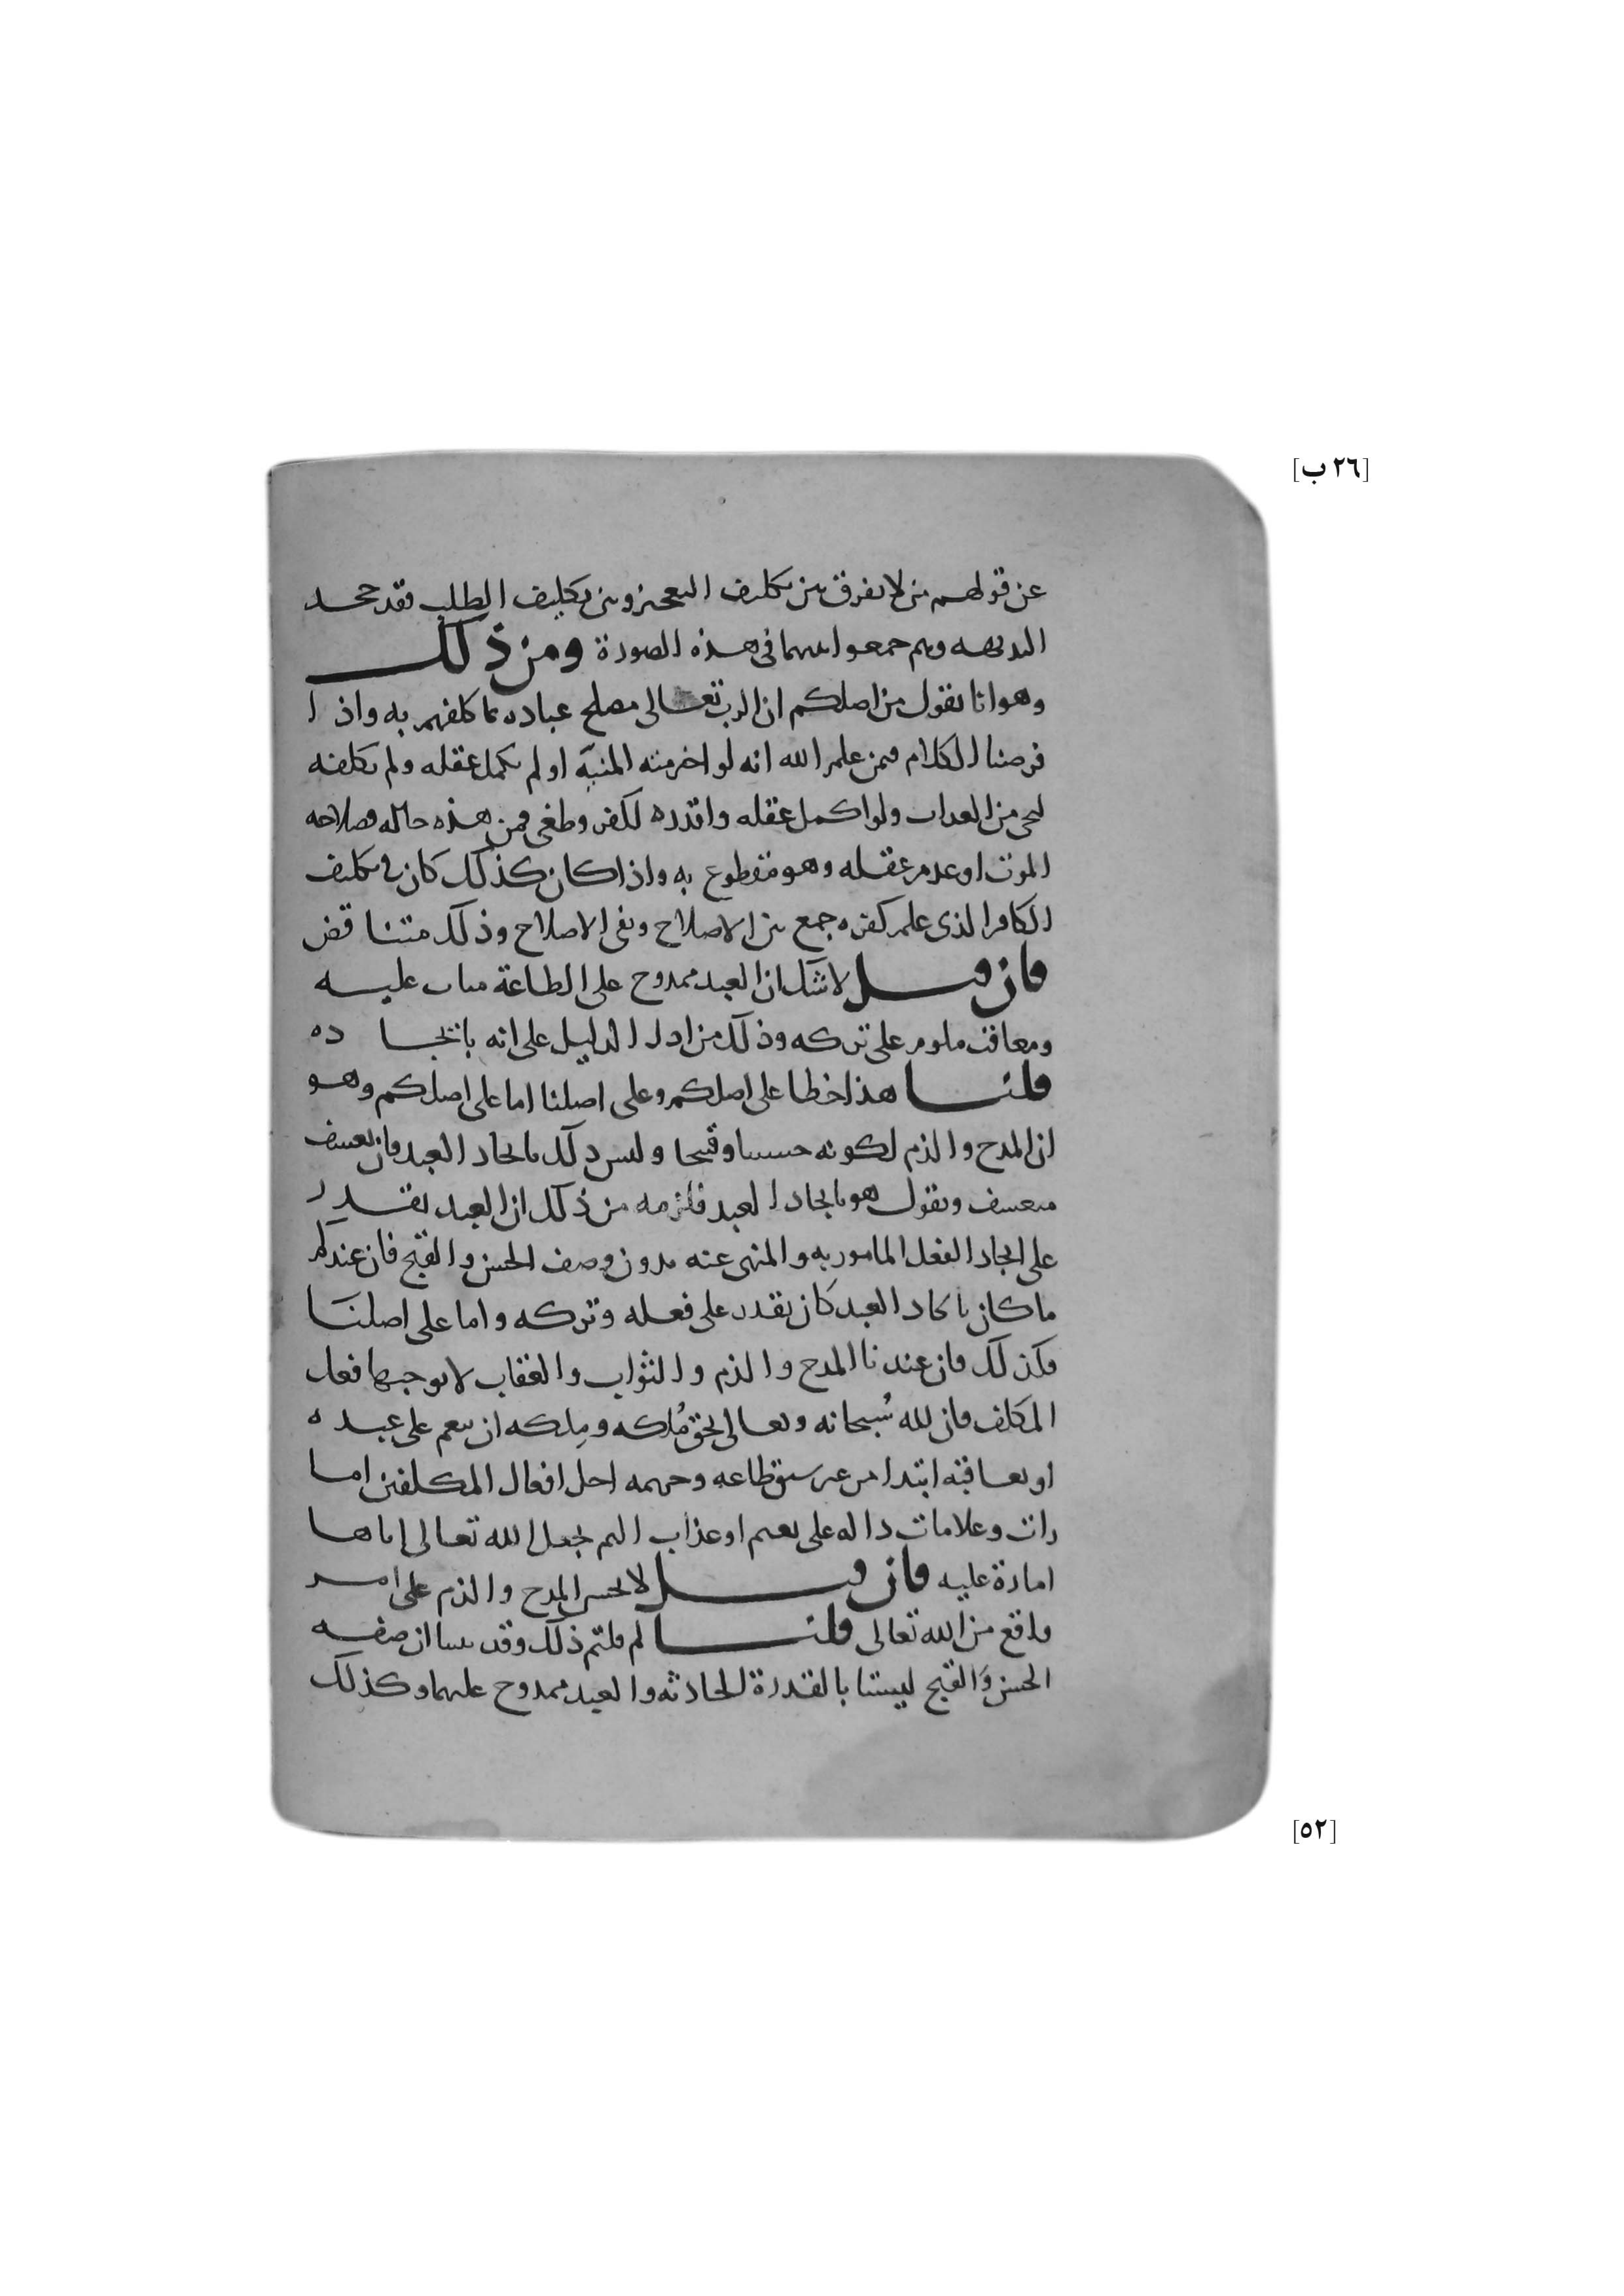 [٢٦ ب]
عن قولهم من لا يفرق بين تكليف التعجيز وبين تكليف الطلب فقد جحد
البديهه وهم جمعوا بينهما في هذه الصورة ومن ذلك
وهو انا نقول من اصلكم ان الرب تعالى مصلح عباده بما كلفهم به واذا
فرضنا الكلام فيمن علم الله انه لو اخترمته المنية او لم يكمل عقله ولم يكلفه
لنجى من العذاب ولو اكمل عقله واقدره لكفر وطغى فمن هذه حاله فصلاحه
الموت او عدم عقله وهو مقطوع به واذا كان كذلك كان في تكليف
الكافر الذي علم كفره جمع بين الاصلاح ونفى الاصلاح وذلك متناقض
فان قيل لا شك ان العبد ممدوح على الطاعة مثاب عليه
ومعاقب ملوم على تركه وذلك من ادل الدليل على انه بايجاده
قلنا هذا خطا على اصلكم وعلى اصلنا اما على اصلكم وهو
ان المدح والذم لكونه حسنا وقبيحا وليس ذلك بايجاد العبد فان تعسف
متعسف ونقول هو بايجاد العبد فلزمه من ذلك ان العبد يقدر
على ايجاد الفعل المامور به والمنهى عنه بدون وصف الحسن والقبح فان عندكم
ما كان بايجاد العبد كان يقدر على فعله وتركه واما على اصلنا
فكذلك فان عندنا المدح والذم والثواب والعقاب لا يوجبها فعل
المكلف فان لله سُبحانه وتعالى بحق مُلكه ومِلكه ان ينعم على عبده
او يعاقبه ابتدا من غير سبق طاعه وجريمه اجل افعال المكلفين اما
رات وعلامات داله على نعيم او عذاب اليم لجعل الله تعالى اياها
امارة عليه فان قيل لا يحسن المدح والذم على امر
واقع من الله تعالى قلنا لم قلتم ذلك وقد بينا ان صفه
الحسن وَالقبح ليستا بالقدرة الحادثه والعبد ممدوح عليهما وكذلك
[٥٢]